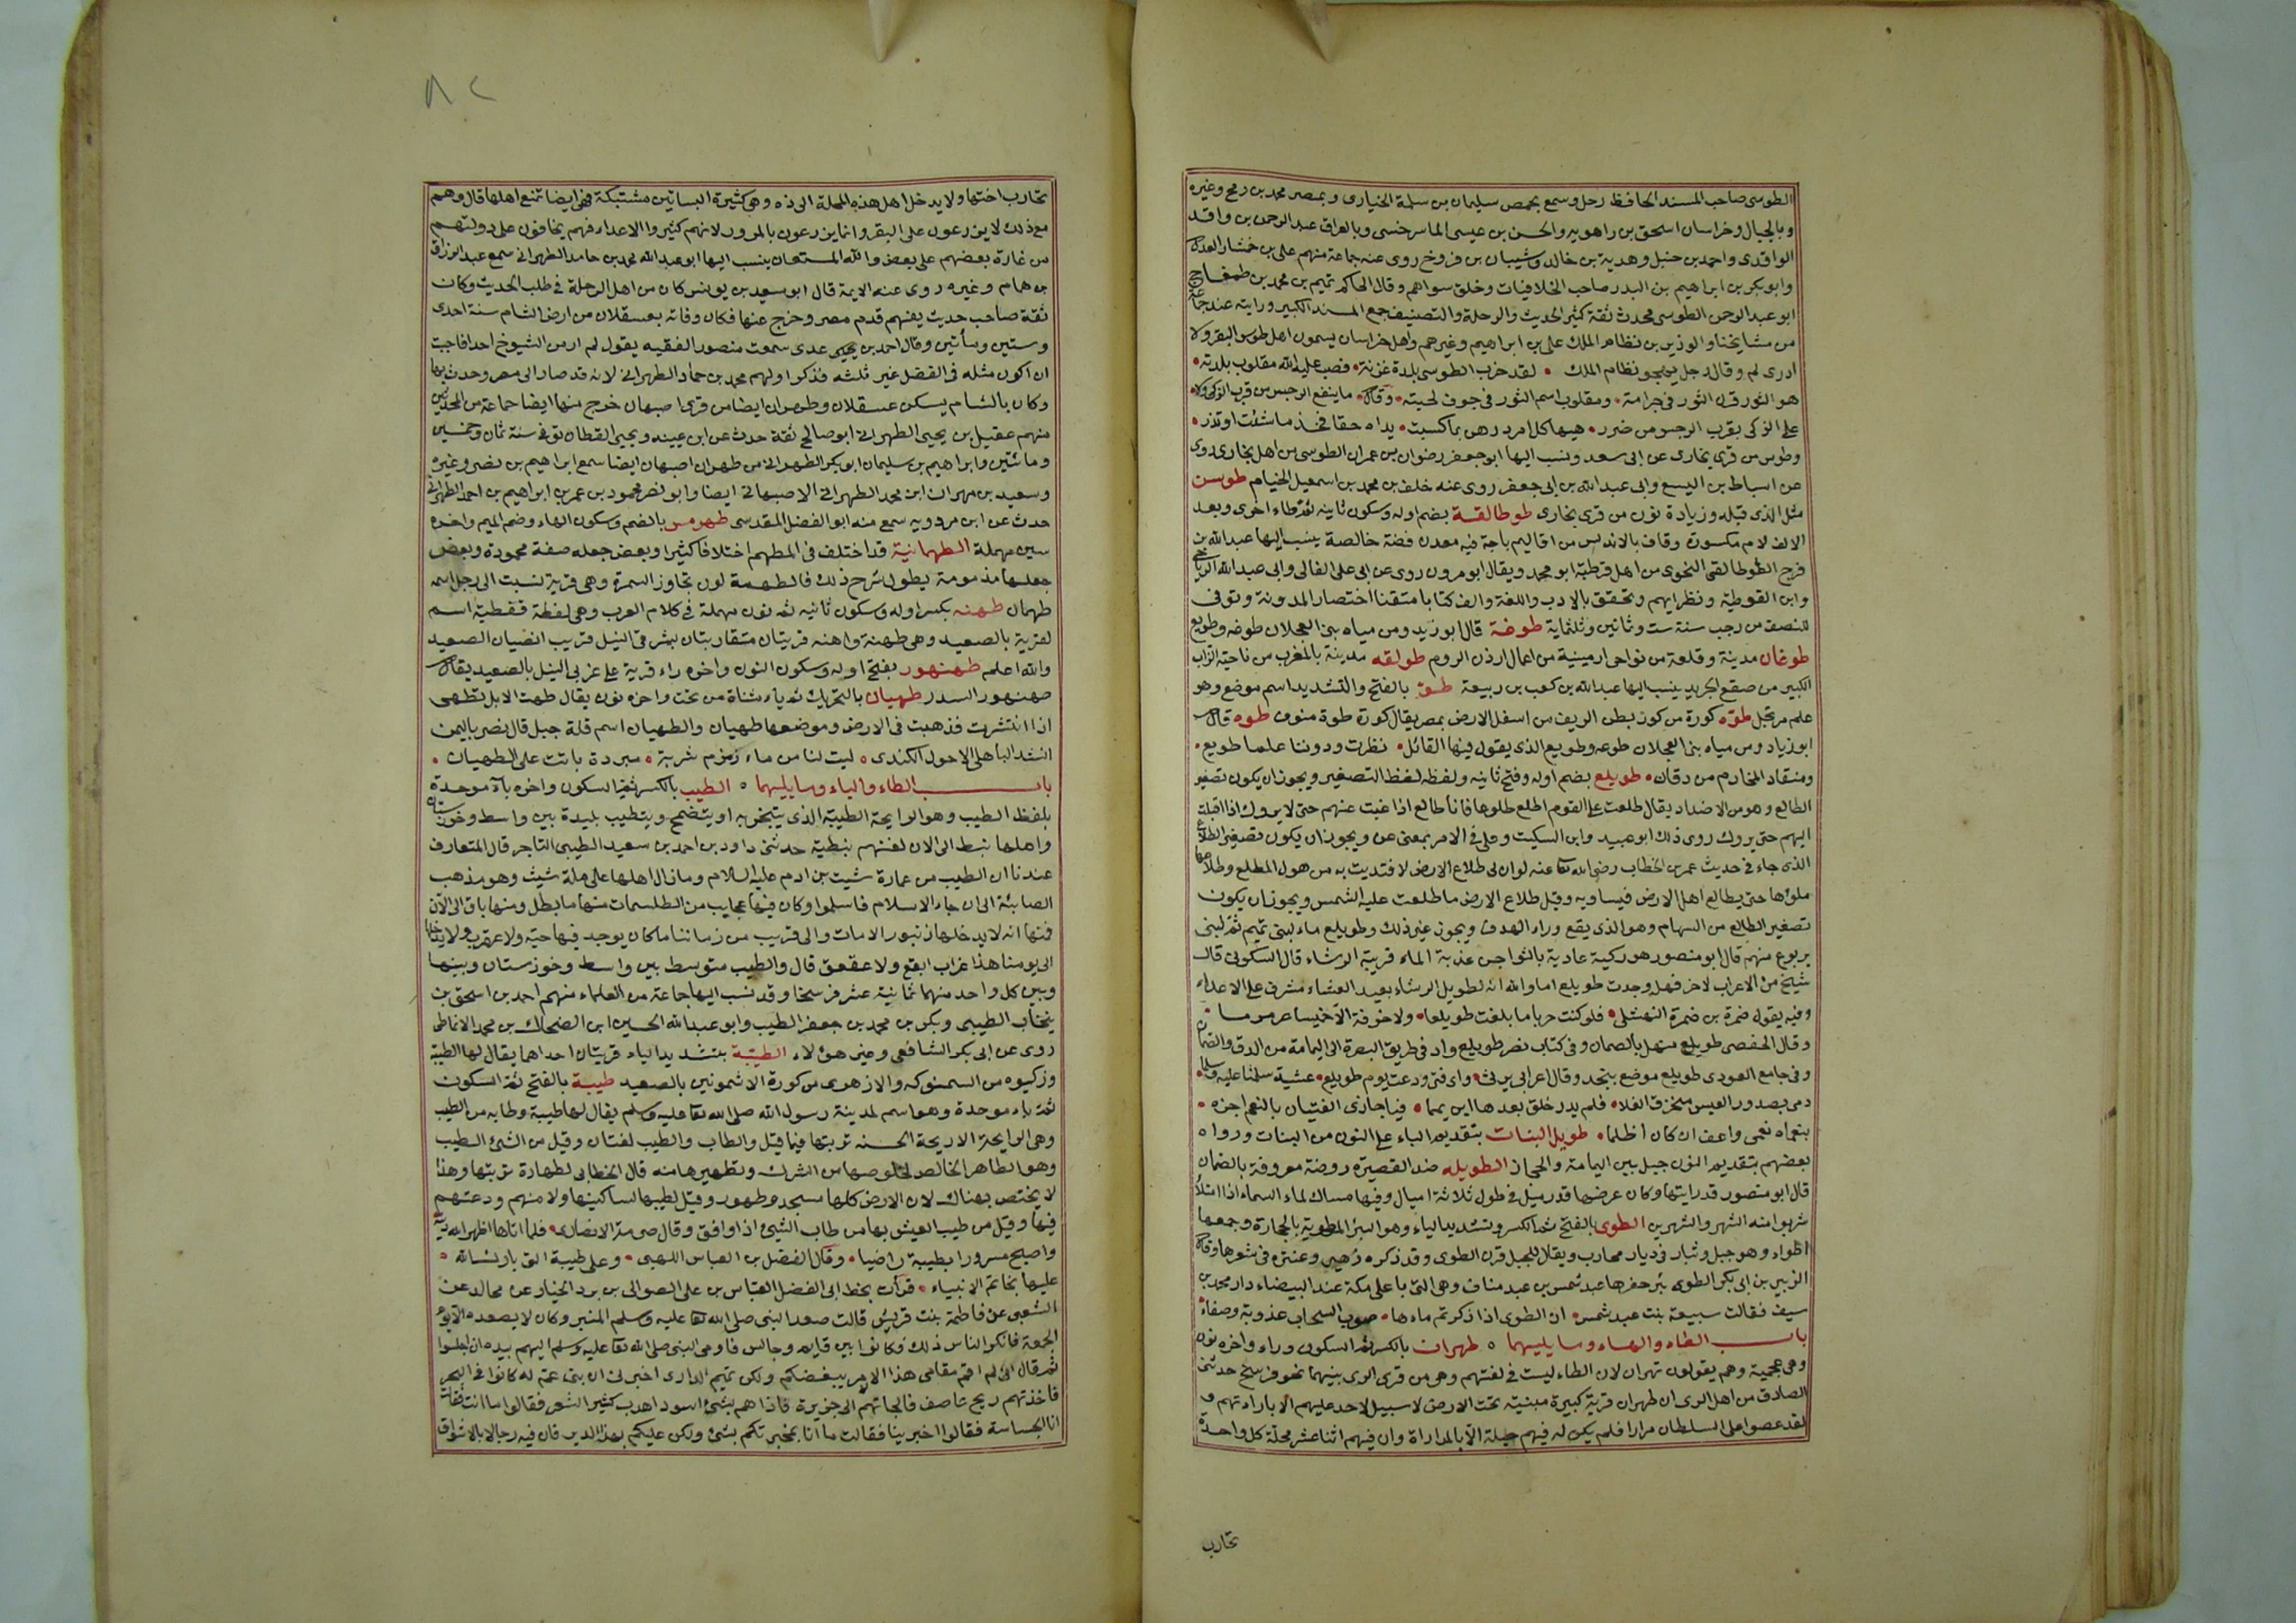 الطوسى صاحب المسند الحافظ رحل وسمع بحمص سليمان بن سلمة الخبارى وبمصر محمد بن رمح وغيره
وبالجبال وخراسان اسحق بن راهويه والحسن بن عيسى الماسرخسى وبالعراق عبد الرحمن بن واقد
الواقدى واحمد بن حنبل وهدبة بن خالد وشيبان بن فروخ روى عنه جماعة منهم على بن حمشار العدل
وابو بكر بن ابراهيم بن البدر صاحب الخلافيات وخلق سواهم وقال الحاكم تميم بن محمد بن طمغاج
ابو عبد الرحمن الطوسى محدث ثقة كثير الحديث والرحلة والتصنيف جمع المسند الكبير ورايته عند جماعة
من مشايخنا والوزير بن نظام الملك على بن ابراهيم وغيرهم واهل خراسان يسمون اهل طوس البقر ولا
ادرى لم وقال رجل يهجو نظام الملك • لقد خرب الطوسى بلدة غزنة • فصب عليه الله مقلوب بلدته •
هو الثور قرن الثور فى حرامة • ومقلوب اسم الثور فى جوف لحيته • وقال • ما ينفع الرجس من قرب الزكى ولا •
على الزكى بقرب الرجس من ضرر • هيهات كل امرء رهن بما كسبت • يداه حقا فخذ ما شئت او تذر •
وطوس من قرى بخارى عن ابى سعد وينسب اليها ابو جعفر رضوان بن عمران الطوسى من اهل بخارى روى
عن اسباط بن اليسع وابى عبد الله بن ابى جعفر روى عنه خلف بن محمد بن اسمعيل الخيام طوسن
مثل الذى قبله وزيادة نون من قرى بخارى طوطالقة بضم اوله وسكون ثانيه ثم طاء اخرى وبعد
الالف لام مكسورة وقاف بالاندلس من اقاليم باجة فيه معدن فضة خالصة ينسب اليها عبد الله بن
فرج الطوطالقى النحوى من اهل قرطبة ابو محمد ويقال ابو مرون روى عن ابى على القالى وابى عبد الله الرباحى
وابن القوطية ونظرايهم وتحقق بالادب واللغة والف كتابا متقنا اختصار المدونة وتوفى
للنصف من رجب سنة ست وثمانين وثلثماية طوعة قال ابو زيد ومن مياه بنى العجلان طوعة وطويع
طوغان مدينة وقلعة من نواحى ارمينية من اعمال ارزن الروم طولقه مدينة بالمغرب من ناحية الزاب
الكبير من صقع الجريد ينسب اليها عبد الله بن كعب بن ربيعة طو بالفتح والتشديد اسم موضع وهو
علم مرتجل طوه كورة من كور بطن الريف من اسفل الارض بمصر يقال كورة طوة منوف طوه قال
ابو زياد ومن مياه بنى العجلان طوعه وطويع الذى يقول فيها القائل • نظرت ودوننا علما طويع •
ومنقاد المخارم من دقان • طويلع بضم اوله وفتح ثانيه ولفظه لفظ التصغير ويجوز ان يكون تصغير
الطالع وهو من الاضداد يقال طلعت على القوم اطلع طلوعا فانا طالع اذا غبت عنهم حتى لا يروك اذا اقبلت
اليهم حتى يروك روى ذلك ابو عبيد وابن السكيت وعلى فى الامر بمعنى عن ويجوز ان يكون تصغير الطلاع
الذى جاء فى حديث عمر بن الخطاب رضى الله تعا عنه لو ان لى طلاع الارض لافتديت به من هول المطلع وطلاعها
ملؤها حتى يطالع اهل الارض فيساويه وقيل طلاع الارض ما طلعت عليه الشمس ويجوز ان يكون
تصغير الطالع من السهام وهو الذى يقع وراء الهدف ويجوز غير ذلك وطويلع ماء لبنى تميم ثم لبنى
يربوع منهم قال ابو منصور هو ركية عادية بالشواجن عذبة الماء قريبة الرشاء قال السكونى قال
شيخ من الاعراب لاخر فهل وجدت طويلع اما والله انه لطويل الرشاء بعيد العشاء مشرف على الاعداء
وفيه يقول ضمرة بن ضمرة النهشلى • فلو كنت حربا ما بلغت طويلعا • ولا خوفة الا خميسا عرمرما •
وقال الحفصى طويلع منهل بالصمان وفى كتاب نصر طويلع واد فى طريق البصرة الى اليمامة من الدو والصمان
وفى جامع الغورى طويلع موضع بنجد وقال اعرابى يرثى • واى فتى ودعت يوم طويلع • عشية سلمنا عليه وسلما •
رمى بصدور العيس منخرق الفلا • فلم يدر خلق بعدها اين يمما • فيا جازى الفتيان بالنعم اجزه •
بنعماه نعمى واعف ان كان اظلما • طويل البنات بتقديم الباء على النون من البنات ورواه
بعضهم بتقديم النون جبل بين اليمامة والحجاز الطويله ضد القصيرة روضة معروفة بالصمان
قال ابو منصور قد رايتها وكان عرضها قدر ميل فى طول ثلاثة اميال وفيها مساك لماء السماء اذا امتلأ
شربوا منه الشهر والشهرين الطوى بالفتح ثم الكسر وتشديد الياء وهو البئر المطوية بالحجارة وجمعها
اطواء وهو جبل وثبار فى ديار محارب ويقال للجبل قرن الطوى وقد ذكره زهير وعنترة فى شعرها وقال
الزبير بن ابى بكر الطوى بئر حفرها عبد شمس بن عبد مناف وهى التى باعلى مكة عند البيضاء دار محمد بن
سيف فقالت سبيعة بنت عبد شمس • ان الطوى اذا ذكرتم ماءها • صوب السحاب عذوبة وصفاء •
باب الطاء والهاء وما يليهما ٥ طهران بالكسر ثم السكون وراء واخره نون
وهى عجمية وهم يقولون تهران لان الطاء ليست فى لغتهم وهى من قرى الرى بينهما نحو فرسخ حدثنى
الصادق من اهل الرى ان طهران قرية كبيرة مبنية تحت الارض لا سبيل لاحد عليهم الا باراد تهم و
لقد عصوا على السلطان مرارا فلم يكن له فيهم حيلة الا بالمداراة وان فيهم اثنا عشر محلة كل واحدة
تحارب
٨٢
تحارب اختها ولا يدخل اهل هذه المحلة الى ذه وهى كثيرة البساتين مشتبكة فهى ايضا تمنع اهلها قال وهم
مع ذلك لا يزرعون على البقر وانما يزرعون بالمرور لانهم كثيروا الاعداء فهم يخافون على دولتهم
من غارة بعضهم على بعض والله المستعان ينسب اليها ابو عبد الله محمد بن حامد الطهرانى سمع عبد الرزاق
بن همام وغيره روى عنه الايمة قال ابو سعيد بن يونس كان من اهل الرحلة فى طلب الحديث وكان
ثقة صاحب حديث يفهم قدم مصر وخرج عنها فكان وفاته بعسقلان من ارض الشام سنة احدى
وستين ومأتين وقال احمد بن يحيى عدى سمعت منصور الفقيه يقول لم ار من الشيوخ احدا فاحببت
ان اكون مثله فى الفضل غير ثلثه فذكر اولهم محمد بن حماد الطهرانى لانه قد صار الى مصر وحدث بها
وكان بالشام يسكن عسقلان وطهران ايضا من قرى اصبهان خرج منها ايضا جماعة من المحدثين
منهم عقيل بن يحيى الطهرانى ابو صالح ثقة حدث عن ابن عيينه ويحيى القطان توفى سنة ثمان وخمسين
ومائتين وابراهيم بن سليمان ابو بكر الطهرانى من طهران اصبهان ايضا سمع ابراهيم بن نصر وغيره
وسعيد بن مهران ابن محمد الطهرانى الاصبهانى ايضا وابو نصر محمود بن عمر بن ابراهيم بن احمد الطهرانى
حدث عن ابن مردويه سمع منه ابو الفضل المقدسى طهرمس بالضم وسكون الهاء وضم الميم واخره
سين مهملة الطهمانية قد اختلف فى المطهم اختلافا كثيرا وبعض جعله صفة محمودة وبعض
جعلها مذمومة يطول شرح ذلك فالطهمة لون تجاوز السمرة وهى قرية نسبت الى رجل اسمه
طهمان طهنه بكسر اوله وسكون ثانيه ثم نون مهملة فى كلام العرب وهى لفظة قفطية اسم
لقرية بالصعيد وهى طهنة واهنه قريتان متقاربتان بشرقى النيل قريب انضيان الصعيد
والله اعلم طهنهور بفتح اوله وسكون النون واخره راء قرية على غربى النيل بالصعيد يقال
طهنهور السدر طهيان بالتحريك ثم ياء مثناة من تحت واخره نون يقال طهت الابل تطهى
اذا انتشرت فذهبت فى الارض وموضعها طهيان والطهيان اسم قلة جبل قال نصر باليمن
انشد الباهلى الاحول الكندى ٥ ليت لنا من ماء زمزم شربة • مبردة باتت على الطهيان •
باب الطاء والياء وما يليهما ٥ الطيب بالكسر ثم السكون واخره بآء موحدة
بلفظ الطيب وهو الرايحة الطيبة الذى يتبخر به او يتضمخ ويتطيب بليدة بين واسط وخوزستان
واهلها نبط الى الان لغتهم نبطية حدثنى داود بن احمد بن سعيد الطيبى التاجر قال المتعارف
عندنا ان الطيب من عمارة شيت بن ادم عليه السلام وما زال اهلها على ملة شيث وهو مذهب
الصابئة الى ان جاء الاسلام فاسلموا وكان فيها عجايب من الطلسمات منها ما بطل ومنها باق الى الآن
فمنها انه لا يدخلها زنبور الا مات والى قريب من زماننا ما كان يوجد فيها حية ولا عقرب ولا يدخلها
الى يومنا هذا غراب ابقع ولا عقعق قال والطيب متوسط بين واسط وخوزستان وبينها
وبين كل واحد منهما ثمانية عشر فرسخا وقد نسب اليها جماعة من العلماء منهم احمد بن اسحق بن
ينخاب الطيبى وبكر بن محمد بن جعفر الطيب وابو عبد الله الحسين ابن الضحاك بن محمد الانماطى
روى عن ابى بكر الشافعى وغير هؤلاء الطيبة بتشديد الياء قريتان احداهما يقال لها الطيبة
وزكيوه من السمنوكه والاز هوى من كورة الاشمونين بالصعيد طيبة بالفتح ثم السكون
ثم باء موحدة وهو اسم لمدينة رسول الله صلى الله تعا عليه وسلم يقال لها طيبة وطابه من الطيب
وهى الرايحة الاريحة الحسنه تربتها فيما قيل والطاب والطيب لغتان وقيل من الشئ الطيب
وهو الطاهر الخالص لخلوصها من الشرك وتطهيرها منه قال الخطابى لطهارة تربتها وهذا
لا يختص بهناك لان الارض كلها مسجد وطهور وقيل لطيبها لساكنيها ولامنهم ودعتهم
فيها وقيل من طيب العيش بها من طاب الشئ اذا وافق وقال صرمة الانصارى • فلما اتاها اظهر الله دينه
واصبح مسرورا بطيبة راضيا • وقال الفضل بن العباس اللهبى • وعلى طيبة التى بارك الله •
عليها بخاتم الانبياء • قرأت بخط ابى الفضل العباس بن على الصوالى بن برد الخيار عن مجالد عن
الشعبى عن فاطمة بنت قريش قالت صعد النبى صلى الله تعا عليه وسلم المنبر وكان لا يصعده الا يوم
الجمعة فانكر الناس ذلك فكانوا بين قايم وجالس فاومى النبى صلى الله تعا عليه وسلم اليهم بيده ان اجلسوا
ثم قال انى لم اقم مقامى هذا الامر ببغضكم ولكن تميم الدارى اخبرنى ان بنى عم له كانوا فى البحر
فاخذتهم ريح عاصف فالجاتهم الى جزيرة فاذا هم بشئ اسود اهدب كثير الشعر فقالوا ما انت فقالت
انا الجساسة فقالوا اخبرينا فقالت ما انا بمخبرتكم بشئ ولكن عليكم بهذا الدير فان فيه رجالا بالاشواق